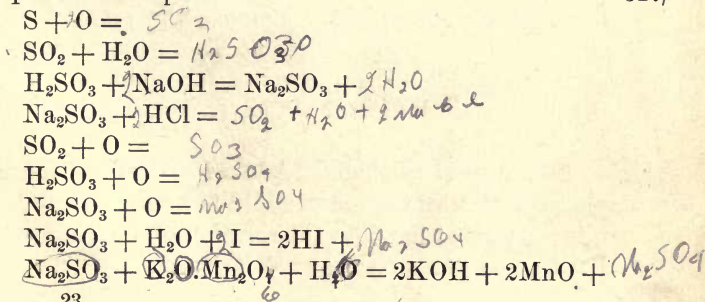 S + 2O = SO2
SO₂ + H₂O = H2SO3
H₂SO₃ + 2NaOH = Na₂SO₃ + 2H2O
Na₂SO₃ + 2HCl = SO2 + H2O + 2NaCl
SO₂ + O = SO3
H₂SO₃ + O = H2SO4
Na₂SO₃ + O = Na2SO4
Na₂SO₃ + H₂O + 2I = 2HI + Na2SO4
Na₂SO₃ + K₂O.Mn₂O + H₂O = 2KOH + 2MnO + Na2SO4
23